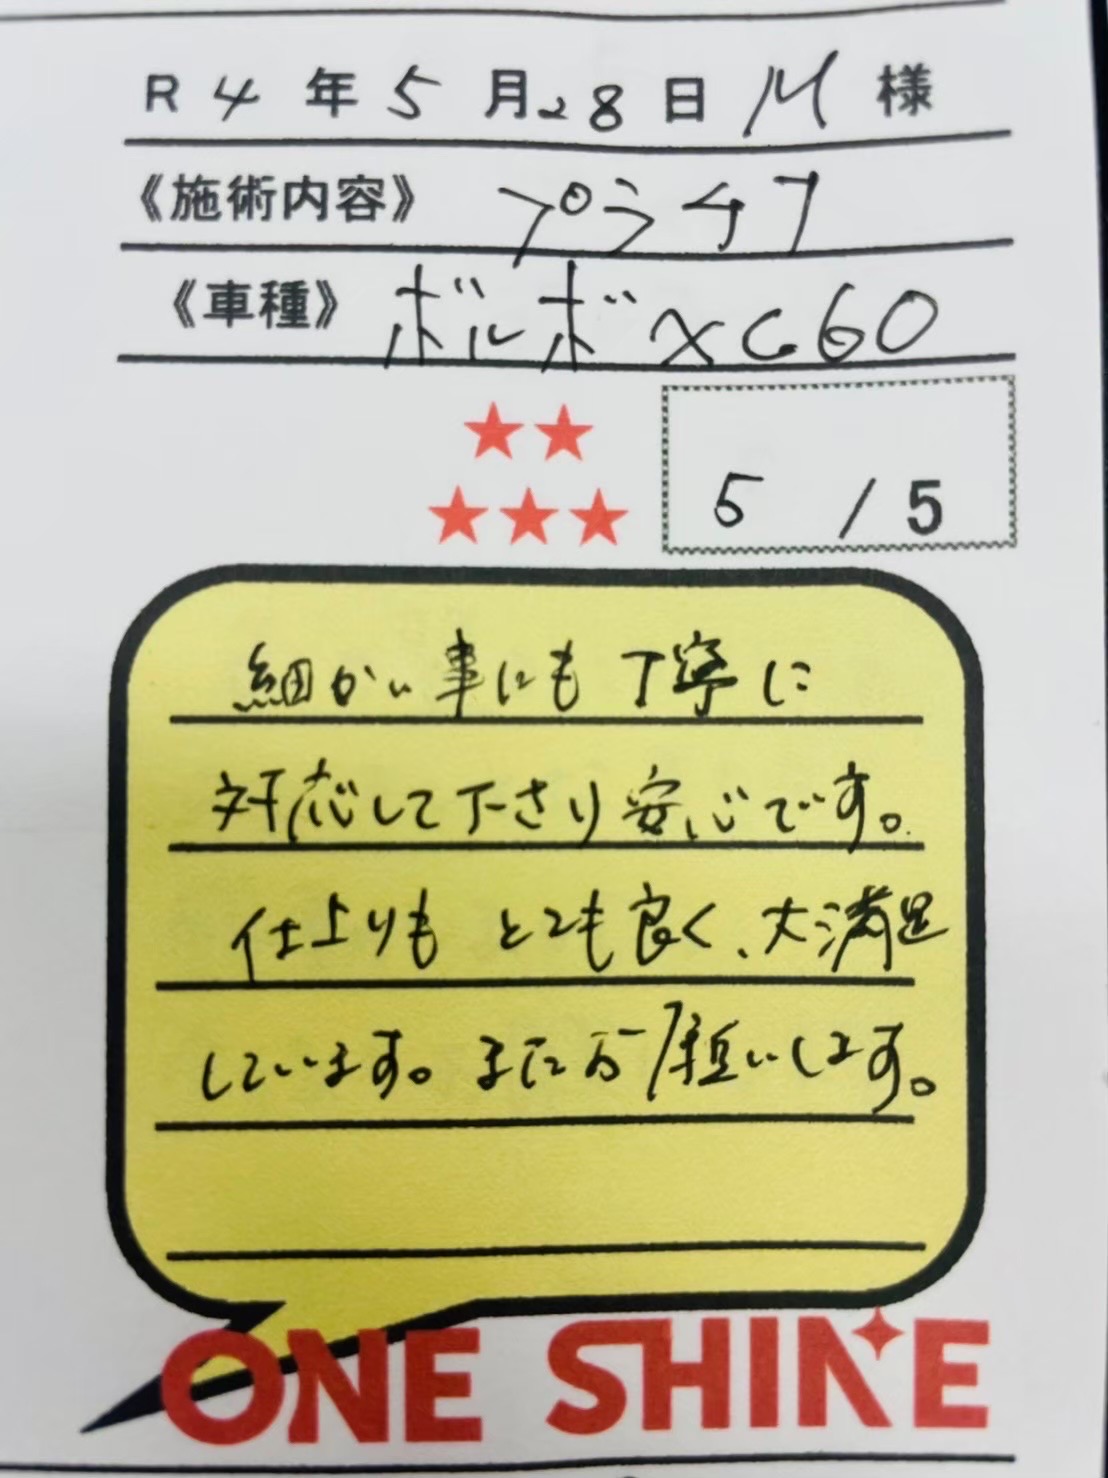 R 4 年 5 月 28 日 M 様
《施術内容》 プラチナ
《車種》 ボルボ XC60
5 / 5
細かい事にも丁寧に
対応して下さり安心です。
仕上りもとても良く、大満足
しています。またお願いします。
ONE SHINE